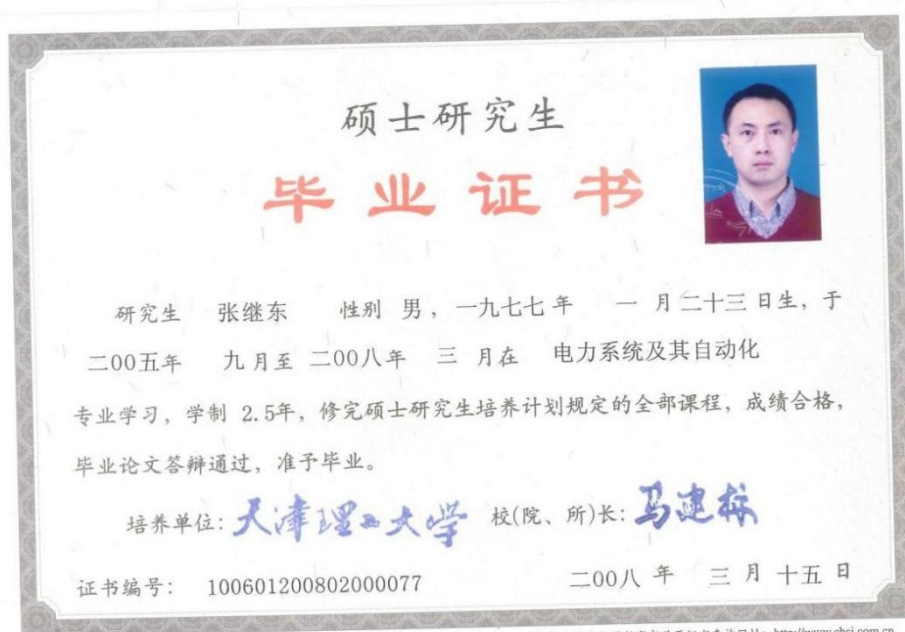 硕士研究生
毕业证书
研究生 张继东 性别 男，一九七七年 一月二十三日生，于
二00五年 九月至 二00八年 三月在 电力系统及其自动化
专业学习，学制 2.5年，修完硕士研究生培养计划规定的全部课程，成绩合格，
毕业论文答辩通过，准予毕业。
培养单位：天津理工大学 校(院、所)长：马建标
证书编号： 100601200802000077 二00八 年 三 月 十五 日
http://www.chsi.com.cn